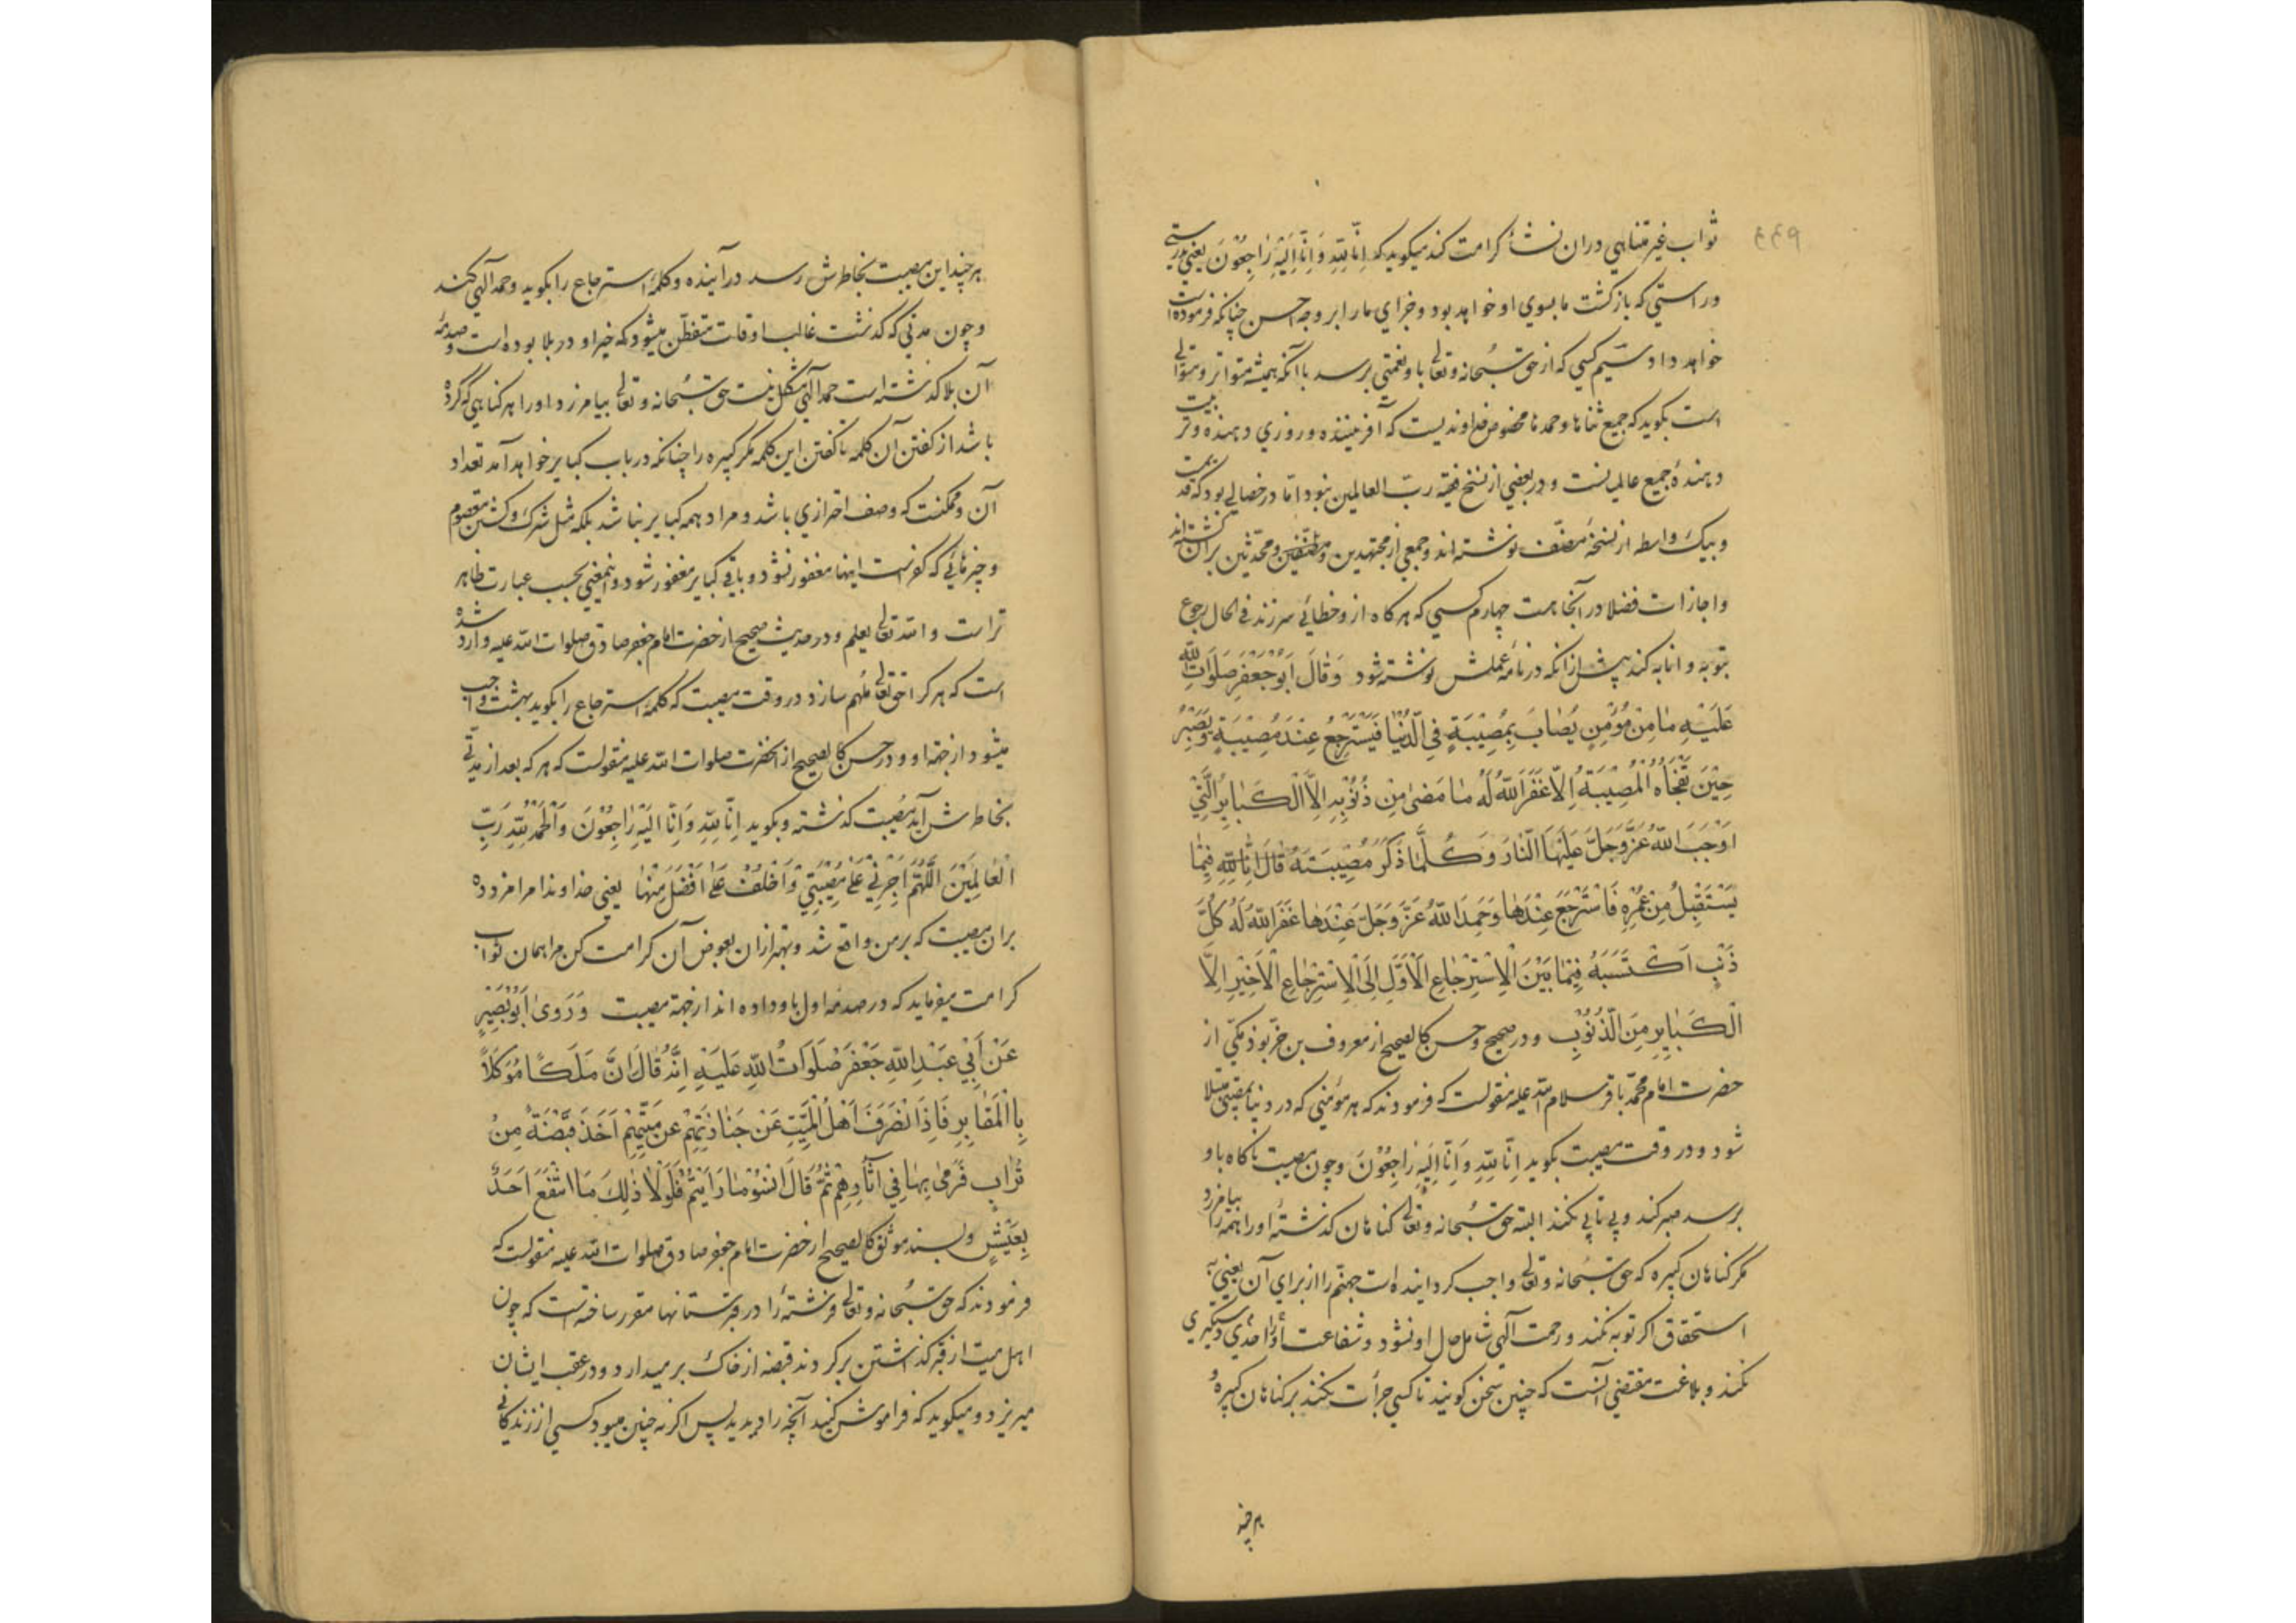 ثواب غیر متناهی در ان نشأ کرامت کند میکوید که اِنَّا لِلّٰهِ وَاِنَّا اِلَیْهِ رَاجِعُوْنَ یعنی بدرستی
وراستی که بازکشت ما بسوی او خواهد بود وجزای ما را بر وجه احسن چنانکه فرموده است
خواهد داد سیم کسی که از حق سبحانه وتعالی باو نعمتی برسد با آنکه همیشه متواتر ومتوالی
است بکوید که جمیع ثناها وحمدها مخصوص خداوندیست که آفریننده وروزی دهنده وتربیت
دهندهٔ جمیع عالمست ودر بعضی از نسخ فقیه ربّ العالمین نبود امّا در خصالی بود که قدیمست
وبیک واسطه از نسخهٔ مصنّف نوشته اند وجمعی از مجتهدین ومصنّفین ومحدّثین بر آن کذشته اند
واجازات فضلا در آنجا هست چهارم کسی که هرکاه از وخطائی سرزند فی الحال رجوع
بتوبه وانابه کند پیش از انکه در نامهٔ عملش نوشته شود وَقَالَ اَبُوْجَعْفَرٍ صَلَوَاتُ اللّٰهِ
عَلَیْهِ مَا مِنْ مُؤْمِنٍ یُصَابُ بِمُصِیْبَةٍ فِی الدُّنْیَا فَیَسْتَرْجِعُ عِنْدَ مُصِیْبَةٍ وَیَصْبِرُ
حِیْنَ تَفْجَأُهُ الْمُصِیْبَةُ اِلَّا غَفَرَ اللّٰهُ لَهُ مَا مَضٰی مِنْ ذُنُوْبِهِ اِلَّا الْکَبَایِرَ الَّتِیْ
اَوْجَبَ اللّٰهُ عَزَّ وَجَلَّ عَلَیْهَا النَّارَ وَکُلَّمَا ذَکَرَ مُصِیْبَتَهُ قَالَ اِنَّا لِلّٰهِ فِیْمَا
یَسْتَقْبِلُ مِنْ عُمْرِهِ فَاسْتَرْجَعَ عِنْدَهَا وَحَمِدَ اللّٰهَ عَزَّ وَجَلَّ عِنْدَهَا غَفَرَ اللّٰهُ لَهُ کُلَّ
ذَنْبٍ اَکْتَسَبَهُ فِیْمَا بَیْنَ الْاِسْتِرْجَاعِ الْاَوَّلِ اِلَی الْاِسْتِرْجَاعِ الْاَخِیْرِ اِلَّا
الْکَبَایِرَ مِنَ الذُّنُوْبِ ودر صحیح وحسن کالصحیح از معروف بن خرّبوذ مکّی از
حضرت امام محمّد باقر سلام الله علیه منقولست که فرمودند که هر مؤمنی که در دنیا بمصیبتی مبتلا
شود ودر وقت مصیبت بکوید اِنَّا لِلّٰهِ وَاِنَّا اِلَیْهِ رَاجِعُوْنَ وچون مصیبت ناکاه باو
برسد صبر کند وبی تابی نکند البته حق سبحانه وتعالی کناهان کذشتهٔ او را همه را بیامرزد
مکر کناهان کبیره که حق سبحانه وتعالی واجب کردانیده است جهنم را از برای آن یعنی به
استحقاق اکر توبه نکند ورحمت آلهی شامل حال او نشود وشفاعت او را احدی دستکیری
نکند وبلاغت مقتضی آنست که چنین سخن کویند تا کسی جرأت نکند بر کناهان کبیره
هرچند
هرچند این مصیبت بخاطرش رسد در آینده وکلمهٔ استرجاع را بکوید وحمد آلهی کند
وچون مدتی که کذشت غالب اوقات متفطّن میشود که خیر او در بلا بوده است وصدمهٔ
آن بلا کذشته است حمد آلهی مشکل نیست حق سبحانه وتعالی بیامرزد او را هر کناهی که کرده
باشد از کفتن آن کلمه تا کفتن این کلمه مکر کبیره را چنانکه در باب کبایر خواهد آمد تعداد
آن وممکنست که وصف احترازی باشد ومراد همه کبایر نباشد بلکه مثل شرک وکشتن معصوم
وچیزهائی که کفرست اینها مغفور نشود وباقی کبایر مغفور شود واینمعنی بحسب عبارت ظاهر
تراست والله تعالی یعلم ودر حدیث صحیح از حضرت امام جعفر صادق صلوات الله علیه وارد شده
است که هرکرا حق تعالی ملهم سازد در وقت مصیبت که کلمهٔ استرجاع را بکوید بهشت واجب
میشود از جهة او ودر حسن کالصحیح از آنحضرت صلوات الله علیه منقولست که هر که بعد از مدتی
بخاطرش آید مصیبت کذشته وبکوید اِنَّا لِلّٰهِ وَاِنَّا اِلَیْهِ رَاجِعُوْنَ وَالْحَمْدُ لِلّٰهِ رَبِّ
الْعَالَمِیْنَ اَللّٰهُمَّ اَجِرْنِیْ عَلٰی مُصِیْبَتِیْ وَاَخْلُفْ عَلَیَّ اَفْضَلَ مِنْهَا یعنی خداوندا مرا مزد ده
بران مصیبت که بر من واقع شد وبهتر از ان بعوض آن کرامت کن مرا همان ثواب
کرامت میفرماید که در صدمه اول باو داده اند از جهة مصیبت وَرَوٰی اَبُوْبَصِیْرٍ
عَنْ اَبِیْ عَبْدِ اللّٰهِ جَعْفَرٍ صَلَوَاتُ اللّٰهِ عَلَیْهِ اِنَّهُ قَالَ اِنَّ مَلَکًا مُوَکَّلًا
بِالْمَقَابِرِ فَاِذَا انْصَرَفَ اَهْلُ الْمَیِّتِ عَنْ جَنَازَتِهِمْ عَنْ مَیِّتِهِمْ اَخَذَ قَبْضَةً مِنْ
تُرَابٍ فَرَمٰی بِهَا فِیْ آثَارِهِمْ ثُمَّ قَالَ انْسَوْا مَا رَاَیْتُمْ فَلَوْلَا ذٰلِکَ مَا انْتَفَعَ اَحَدٌ
بِعَیْشٍ وبسند موثق کالصحیح از حضرت امام جعفر صادق صلوات الله علیه منقولست که
فرمودند که حق سبحانه وتعالی فرشتهٔ را در قبرستانها مقرر ساخته است که چون
اهل میت از قبر کذاشتن برکردند قبضه از خاک برمیدارد ودر عقب ایشان
میریزد ومیکوید که فراموش کنید آنچه را دیدید پس اکر نه چنین میبود کسی از زندکانی